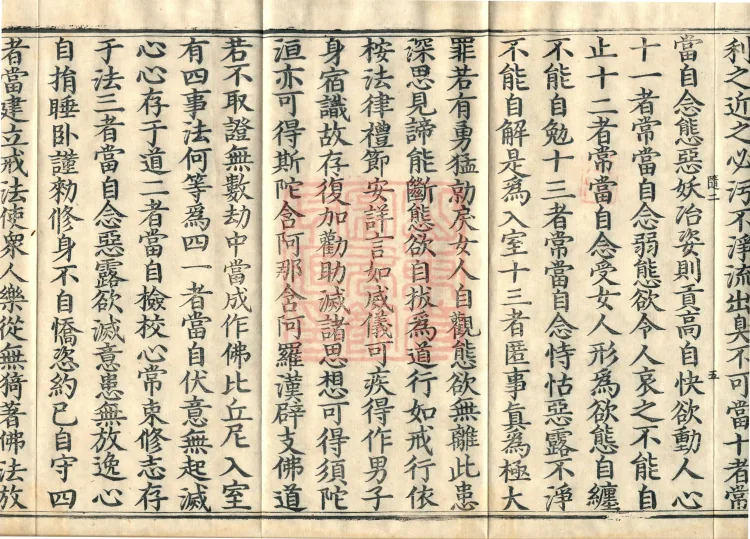 利之近之必污不淨流出臭不可當十者常
隨二 五
當自念態惡妖冶姿則貢高自快欲動人心
十一者常當自念弱態欲令人哀之不能自
止十二者常當自念受女人形為欲態自纏
不能自勉十三者常當自念恃怙惡露不淨
不能自解是為入室十三者匿事真為極大
罪若有勇猛勍疾女人自觀態欲無離此患
深思見諦能斷態欲自拔為道行如戒行依
桉法律禮節安詳言如威儀可疾得作男子
身宿識故存復加勸助滅諸思想可得須陀
洹亦可得斯陀含阿那含阿羅漢辟支佛道
若不取證無數劫中當成作佛比丘尼入室
有四事法何等為四一者當自伏意無起滅
心心存于道二者當自撿挍心常束修志存
于法三者當自念惡露欲滅意患無放逸心
自揹睡卧謹勑修身不自憍恣約已自守四
者當建立戒法使衆人樂從無猗著佛法放